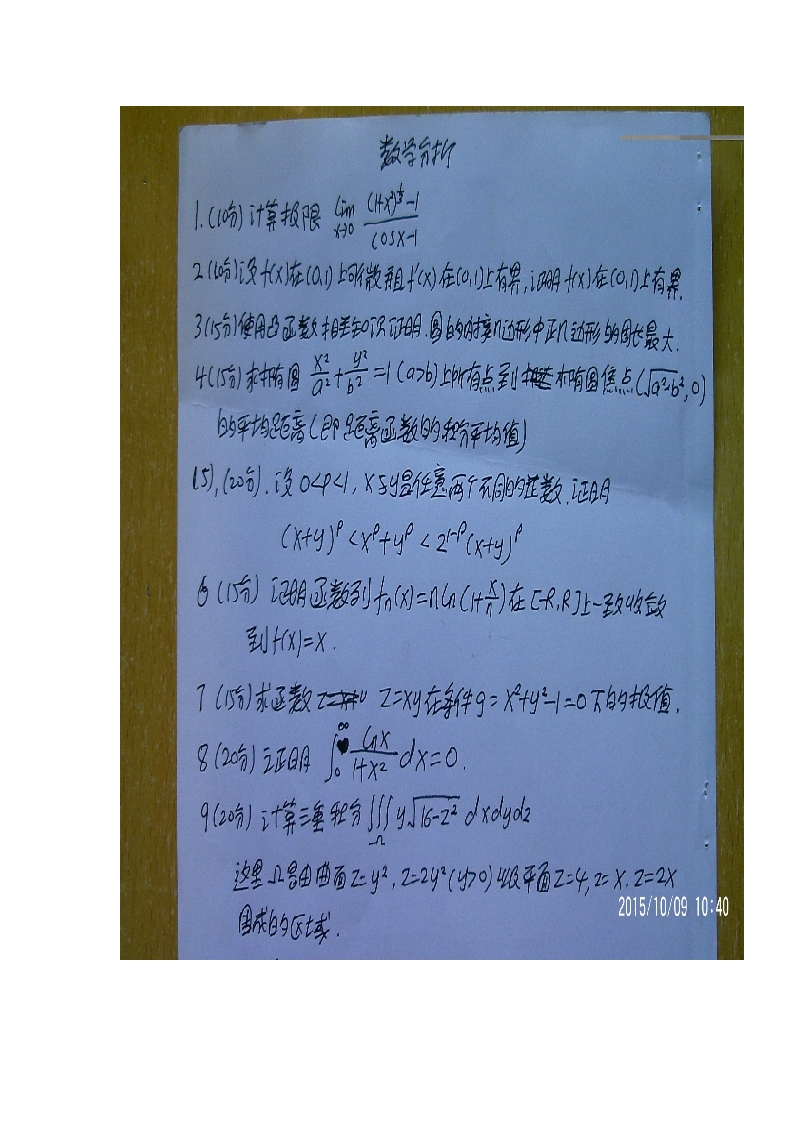 数学分析
1.(10分)计算极限 lim x→0 ((1+x²)^{1/3}-1)/(cosx-1)
2(10分)设f(x)在(0,1)上可微,且f'(x)在(0,1)上有界,证明f(x)在(0,1)上有界.
3(15分)使用凸函数相关知识证明.圆的内接n边形中正n边形的周长最大.
4(15分)求椭圆 x²/a²+y²/b²=1(a>b)上所有点到 椭圆焦点(√(a²-b²),0)
的平均距离(即距离函数的积分平均值)
(5),(20分).设0<p<1,x与y是任意两个不同的正数.证明
(x+y)^p<x^p+y^p<2^{1-p}(x+y)^p
6(15分) 证明函数列f_n(x)=n ln(1+x/n)在[-R,R]上一致收敛
到f(x)=x.
7(15分)求函数 z=xy在条件g=x²+y²-1=0下的极值.
8(20分)证明 ∫_0^∞ lnx/(1+x²) dx=0.
9(20分)计算三重积分∭_Ω y√(16-z²) dxdydz
这里Ω是由曲面z=y²,z=2y²(y>0)以及平面z=4,z=x,z=2x
围成的区域.
2015/10/09 10:40